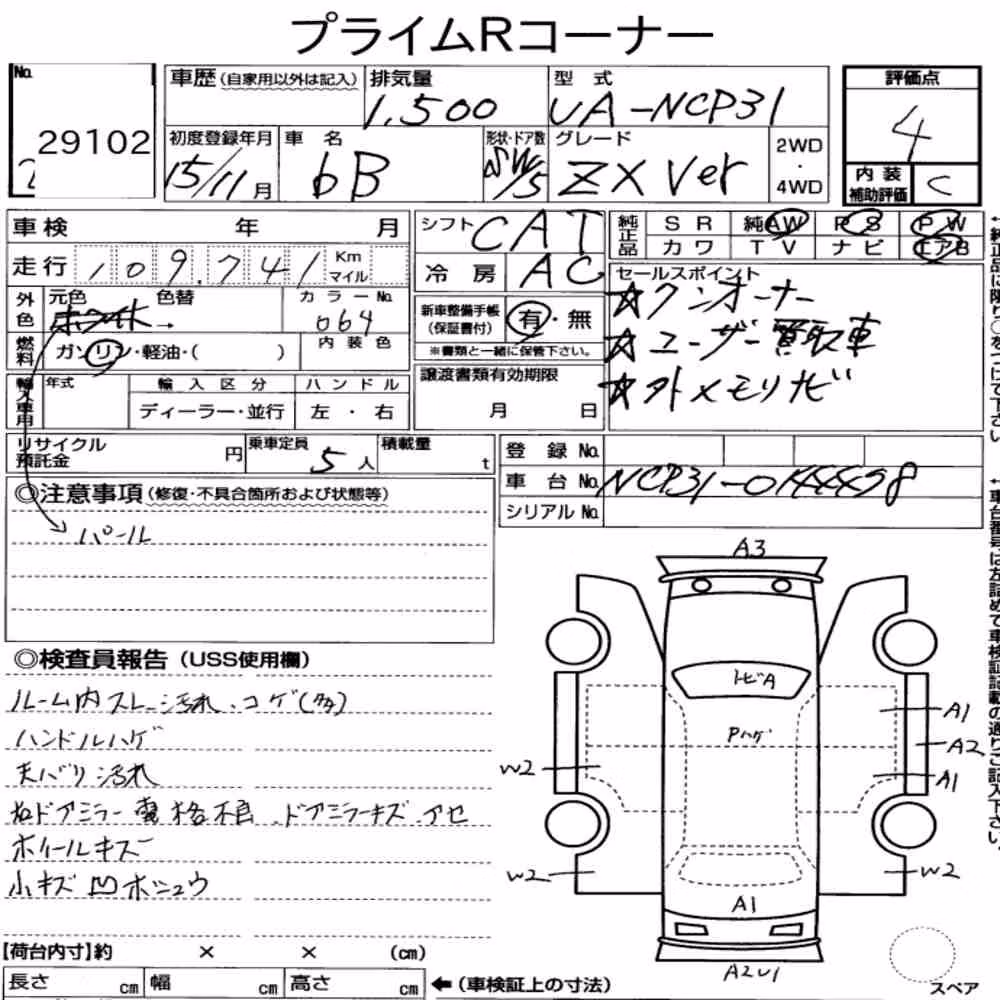 プライムRコーナー
No. 29102
車歴 (自家用以外は記入)
排気量 1,500
型式 UA-NCP31
評価点 4
初度登録年月 15/11月
車名 bB
形状・ドア数 SW/5
グレード ZX Ver
2WD・4WD
内装補助評価 C
車検 年 月
シフト CAT
純正品 SR 純AW PS PW
カワ TV ナビ エアB
走行 109,741 Km マイル
冷房 AC
セールスポイント
☆ワンオーナー
☆ユーザー買取車
☆外メモリナビ
外色 元色 ホワイト→ 色替
カラーNo. 064
新車整備手帳(保証書付) 有・無
※書類と一緒に保管下さい。
燃料 ガソリン・軽油・( )
内装色
輸入車用 年式 輸入区分 ハンドル
ディーラー・並行 左・右
譲渡書類有効期限
月 日
リサイクル預託金 円
乗車定員 5人
積載量 t
登録No.
車台No. NCP31-0144498
シリアルNo.
◎注意事項 (修復・不具合箇所および状態等)
パール
◎検査員報告 (USS使用欄)
ルーム内スレ〜汚れ、コゲ(多)
ハンドルハゲ
天バリ汚れ
右ドアミラー電格不良、ドアミラーキズ、アセ
ホイールキズ
小キズ凹ボシュウ
【荷台内寸】約 × × (cm)
長さ cm 幅 cm 高さ cm ←(車検証上の寸法)
A3
トビA
Pハゲ
A1
A2
A1
W2
W2
W2
A1
A2U1
スペア
↑純正品に限り○をつけて下さい
↑車台番号は左詰めで車検証記載の通りご記入下さい。